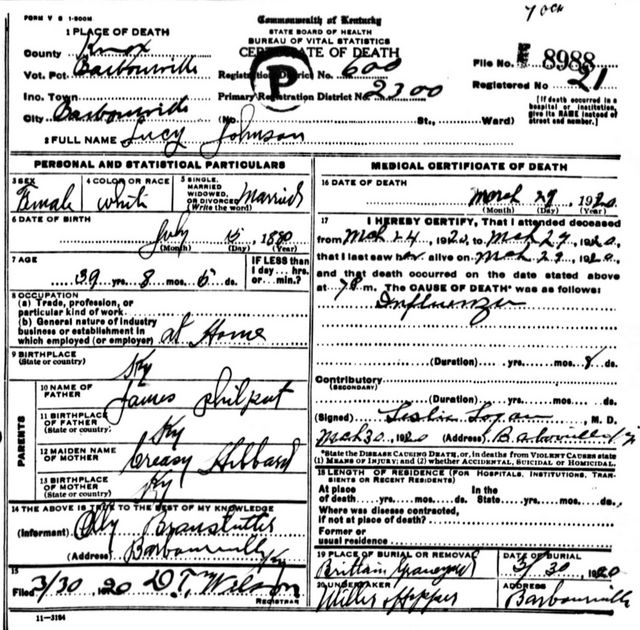 7 och
FORM V S 1-500M
Commonwealth of Kentucky
STATE BOARD OF HEALTH
BUREAU OF VITAL STATISTICS
CERTIFICATE OF DEATH
1 PLACE OF DEATH
County Knox
Vot. Pct Barbourville
Inc. Town
City Barbourville
Registration District No. 600
Primary Registration District No. 2300
(No. St., Ward)
P
File No. 8988
Registered No 21
[If death occurred in a hospital or institution, give its NAME instead of street and number.]
2 FULL NAME Lucy Johnson
PERSONAL AND STATISTICAL PARTICULARS
3 SEX Female
4 COLOR OR RACE white
5 SINGLE, MARRIED WIDOWED, OR DIVORCED (Write the word) Married
6 DATE OF BIRTH
July 15, 1880
(Month) (Day) (Year)
7 AGE
39 yrs. 8 mos. 5 ds.
IF LESS than 1 day... hrs. or min.?
8 OCCUPATION
(a) Trade, profession, or particular kind of work
(b) General nature of industry business or establishment in which employed (or employer) at Home
9 BIRTHPLACE
(State or country) Ky
PARENTS
10 NAME OF FATHER James Philput
11 BIRTHPLACE OF FATHER
(State or country) Ky
12 MAIDEN NAME OF MOTHER Creasy Hibbard
13 BIRTHPLACE OF MOTHER
(State or country) Ky
14 THE ABOVE IS TRUE TO THE BEST OF MY KNOWLEDGE
(Informant)
(Address) Barbourville Ky
15
Filed 3/30 1920 D.T. Wilson
REGISTRAR
11-3184
MEDICAL CERTIFICATE OF DEATH
16 DATE OF DEATH
March 29 1920
(Month) (Day) (Year)
17 I HEREBY CERTIFY, That I attended deceased
from Mch 24, 1920, to Mch 29, 1920,
that I last saw her alive on Mch 29, 1920,
and that death occurred on the date stated above
at m. The CAUSE OF DEATH* was as follows:
Influenza
(Duration) yrs. mos. 8 ds.
Contributory
(SECONDARY)
(Duration) yrs. mos. ds.
(Signed) Leslie Logan, M. D.
Mch 30 1920 (Address) Barbourville Ky
*State the DISEASE CAUSING DEATH, or, in deaths from VIOLENT CAUSES state
(1) MEANS OF INJURY; and (2) whether ACCIDENTAL, SUICIDAL or HOMICIDAL.
18 LENGTH OF RESIDENCE (FOR HOSPITALS, INSTITUTIONS, TRANSIENTS OR RECENT RESIDENTS)
At place of death yrs. mos. ds.
In the State yrs. mos. ds.
Where was disease contracted, if not at place of death?
Former or usual residence
19 PLACE OF BURIAL OR REMOVAL
Brittain Graveyard
DATE OF BURIAL
3/30 1920
20 UNDERTAKER
Miller Hopper
ADDRESS
Barbourville